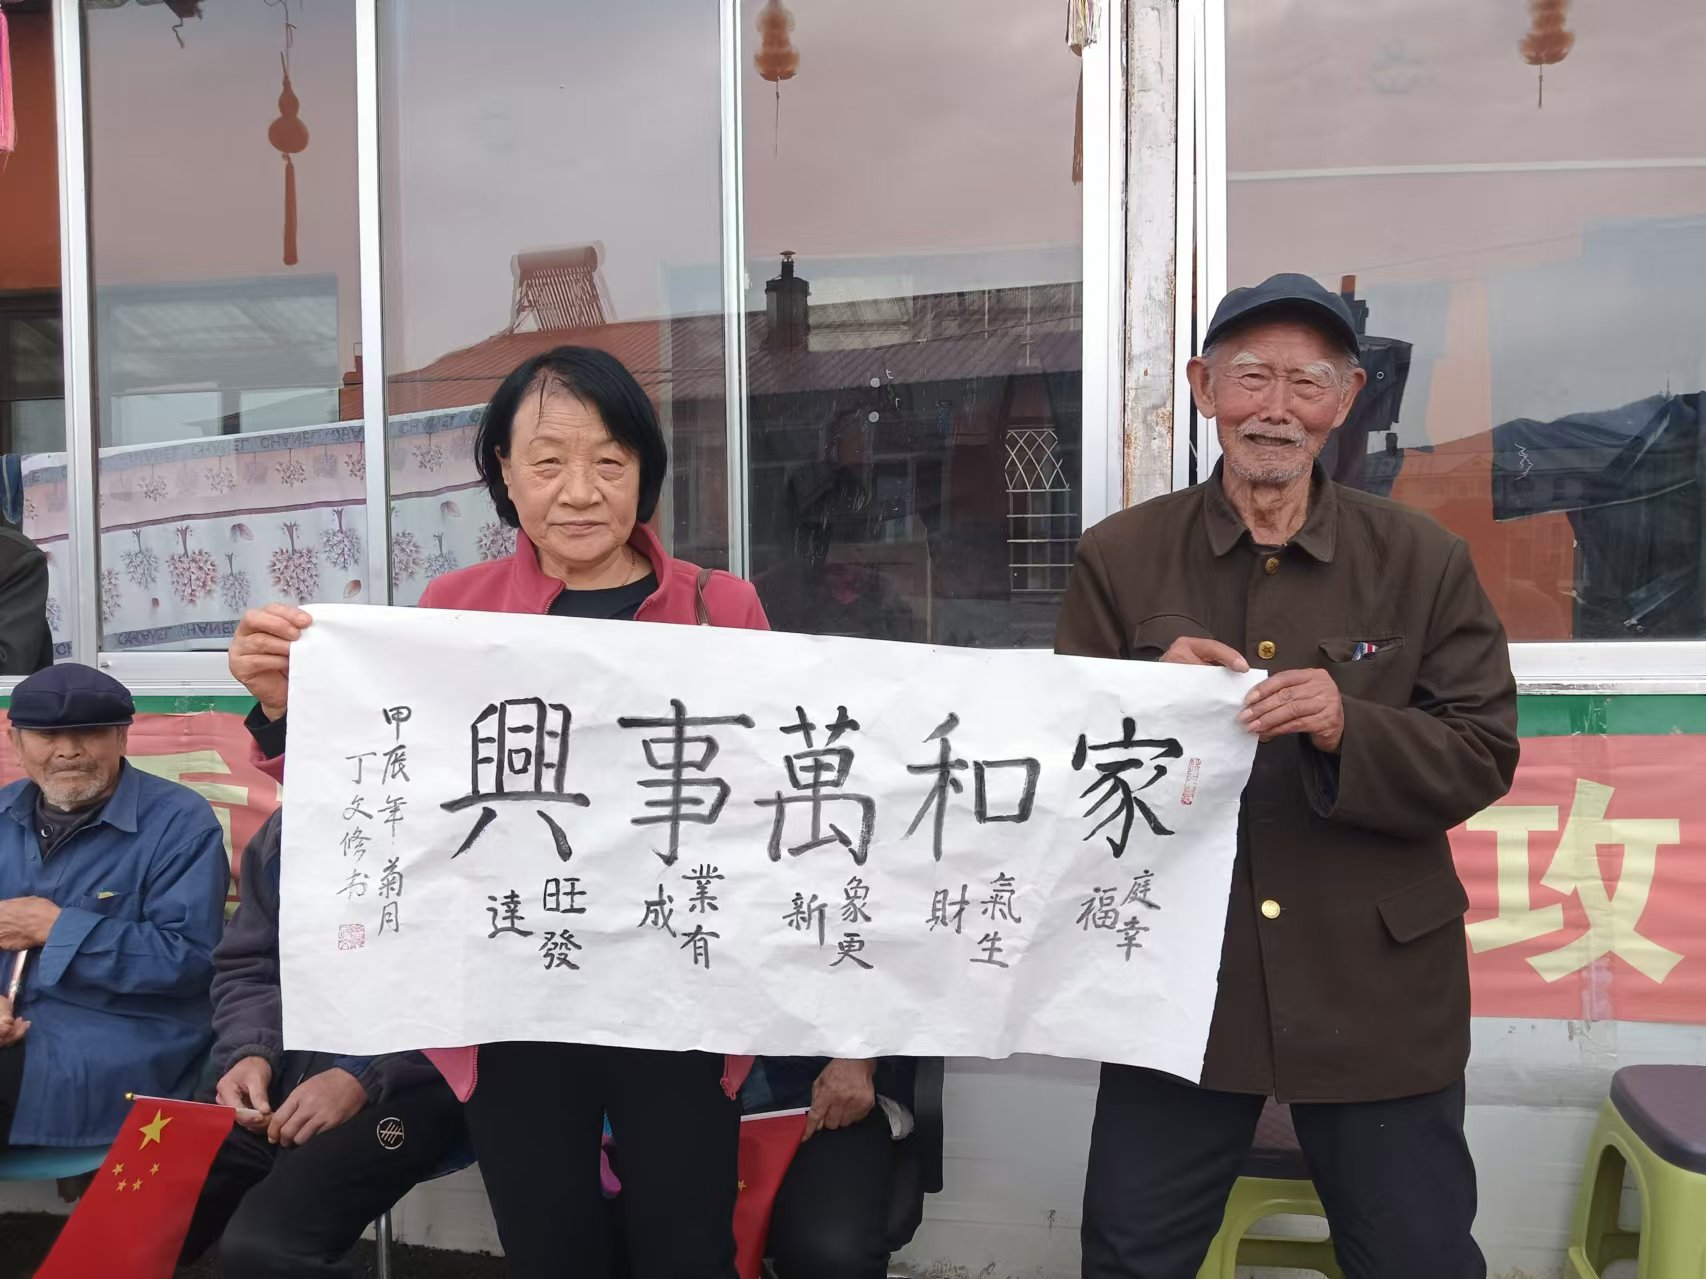 家和萬事興
庭幸福
氣生財
象更新
業有成
旺發達
甲辰年菊月
丁文修书
攻
CHANEL